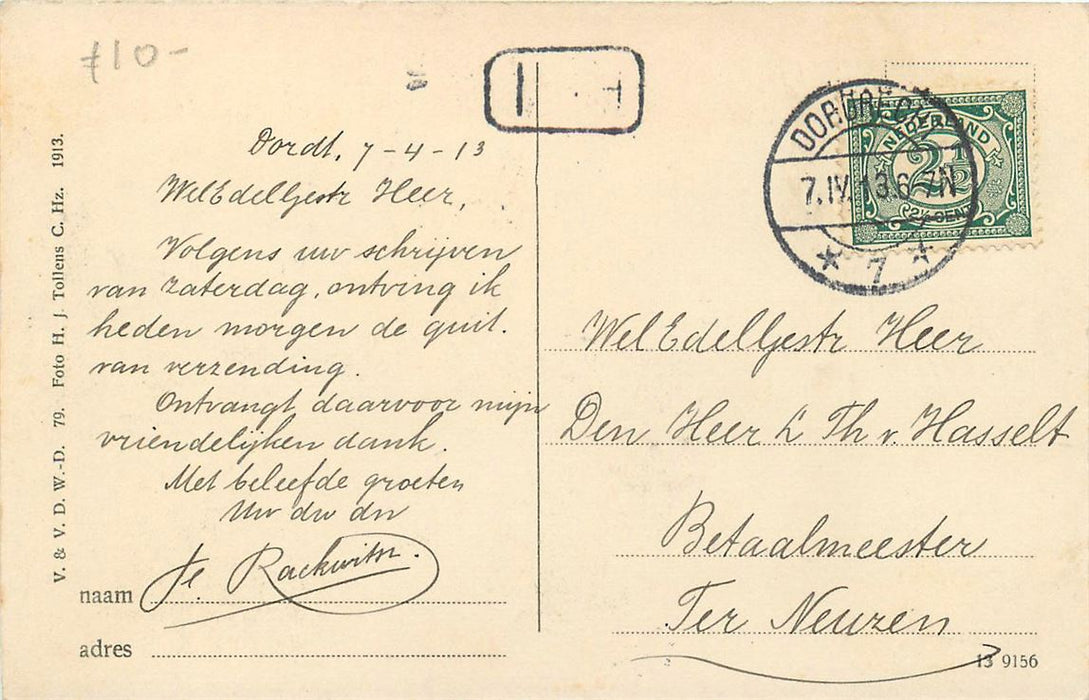 f10-
I T
DORDRECHT
7.IV.13.6-7N
7
NEDERLAND
2½
2½ CENT
Dordt, 7-4-13
WelEdelGestr Heer,
Volgens uw schrijven
van Zaterdag, ontving ik
heden morgen de quit.
van verzending.
Ontvangt daarvoor mijn
vriendelijken dank.
Met beleefde groeten
Uw dw dn
Rackwitsz.
naam
adres
WelEdelGestr Heer
Den Heer L Th v Hasselt
Betaalmeester
Ter Neuzen
13 9156
V. & V. D. W.-D. 79. Foto H. J. Tollens C. Hz. 1913.